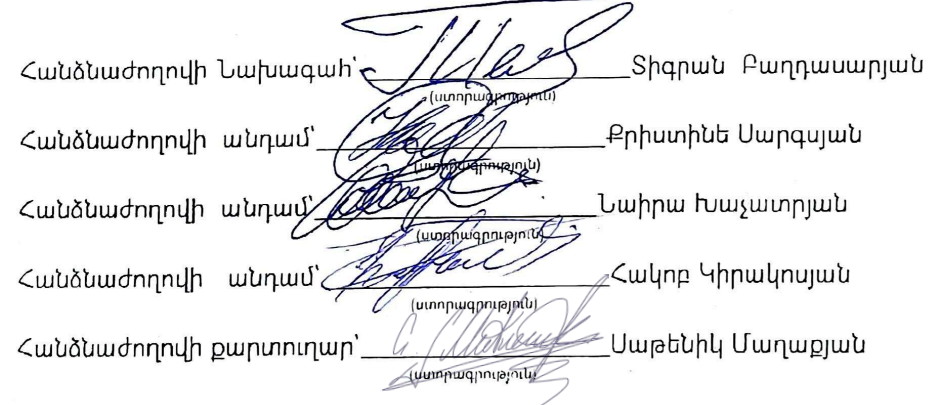 Հանձնաժողովի Նախագահ՝ Տիգրան Բաղդասարյան
(ստորագրություն)
Հանձնաժողովի անդամ՝ Քրիստինե Սարգսյան
(ստորագրություն)
Հանձնաժողովի անդամ՝ Նաիրա Խաչատրյան
(ստորագրություն)
Հանձնաժողովի անդամ՝ Հակոբ Կիրակոսյան
(ստորագրություն)
Հանձնաժողովի քարտուղար՝ Սաթենիկ Մաղաքյան
(ստորագրություն)